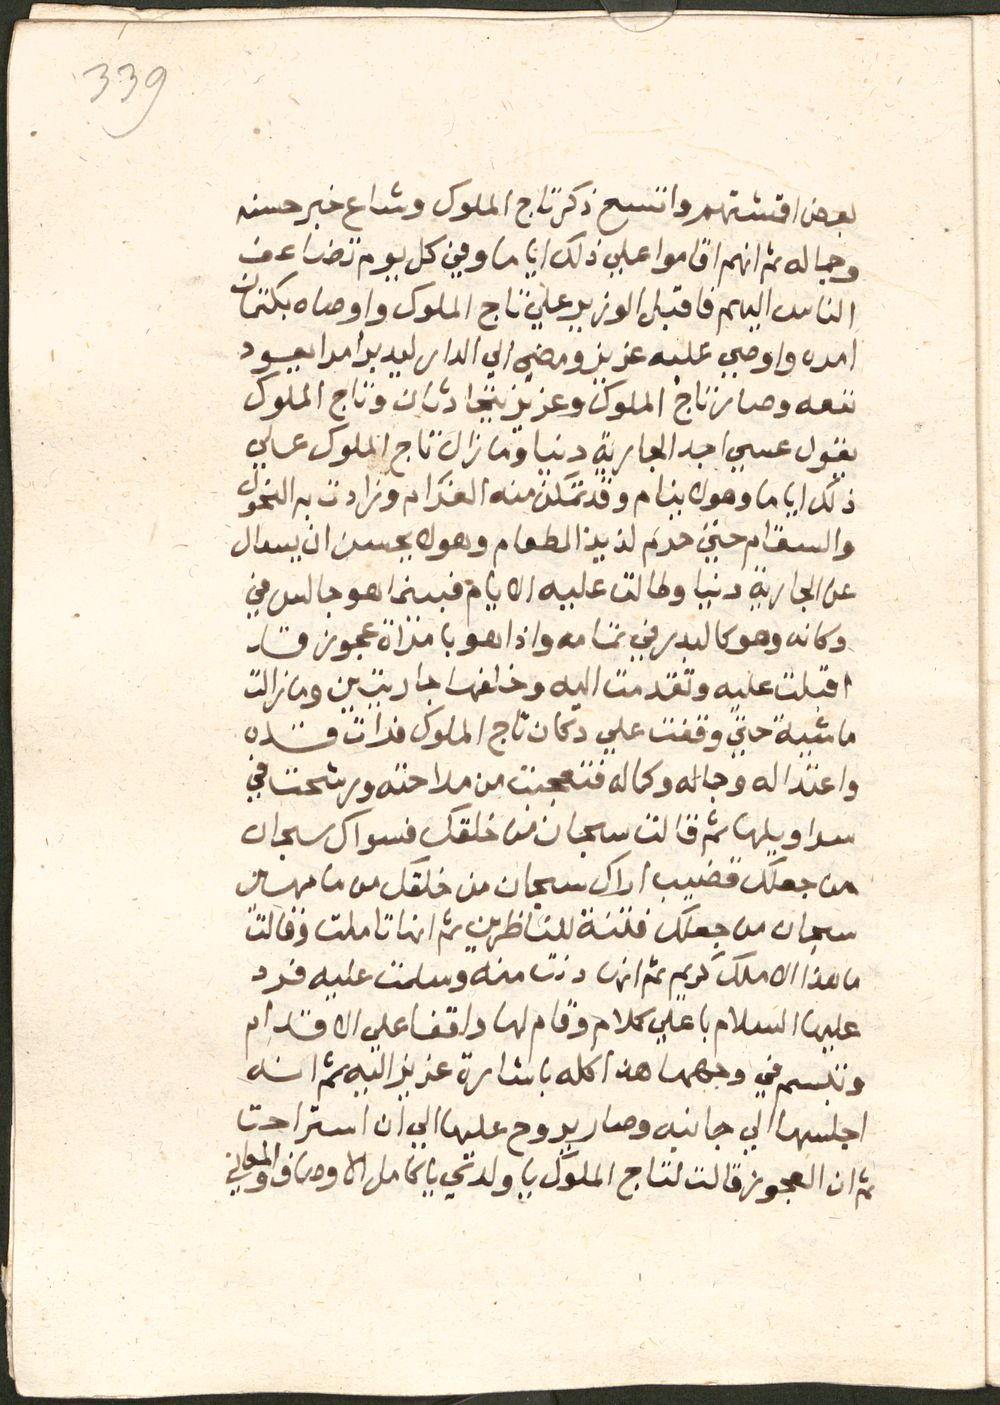 339
بعض اقمشتهم واتسع ذكر تاج الملوك وشاع خبر حسنه
وجماله ثم انهم اقاموا علي ذلك اياما وفي كل يوم تضاعف
الناس اليهم فاقبل الوزير علي تاج الملوك واوصاه بكتمان
امره واوصي عليه عزيز ومضي الي الدار ليدبر امرا يعود
نفعه وصار تاج الملوك وعزيز يتحادثان وتاج الملوك
يقول عسي اجد الجارية دنيا وما زال تاج الملوك علي
ذلك اياما وهو لا ينام وقد تمكن منه الغرام وزادت به النحول
والسقام حتي حرم لذيذ الطعام وهو لا يحسن ان يسال
عن الجارية دنيا وطالت عليه الايام فبينما هو جالس في
دكانه وهو كالبدر في تمامه واذا هو بامراة عجوز قد
اقبلت عليه وتقدمت اليه وخلفها جاريتين وما زالت
ماشية حتي وقفت علي دكان تاج الملوك فرات قده
واعتداله وجماله وكماله فتعجبت من ملاحته ورشحت في
سراويلها ثم قالت سبحان من خلقك فسواك سبحان
من جعلك قضيب اراك سبحان من خلقك من ما مهين
سبحان من جعلك فتنة للناظرين ثم انها تاملت وقالت
ما هذا الا ملك كريم ثم انها دنت منه وسلمت عليه فرد
عليها السلام باعلي كلام وقام لها واقفا علي الاقدام
وتبسم في وجهها هذا كله باشارة عزيز اليه ثم انه
اجلسها الي جانبه وصار يروح عليها الي ان استراحت
ثم ان العجوز قالت لتاج الملوك يا ولدي يا كامل الاوصاف والمعاني